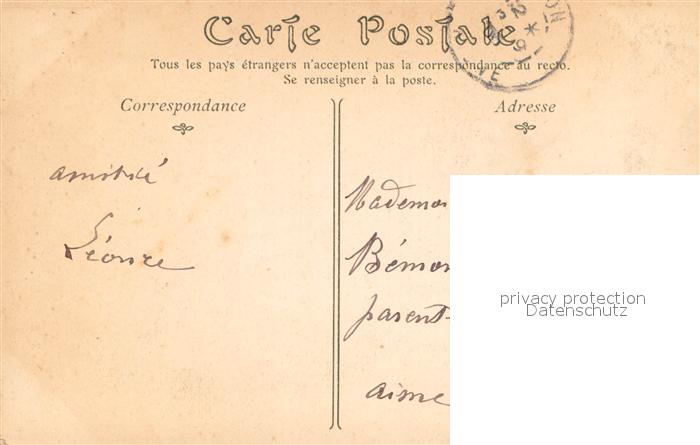 Carte Postale
Tous les pays étrangers n'acceptent pas la correspondance au recto.
Se renseigner à la poste.
Correspondance
Adresse
amitié
Léonce
Mademoi
Bémon
parent-
aime
privacy protection
Datenschutz